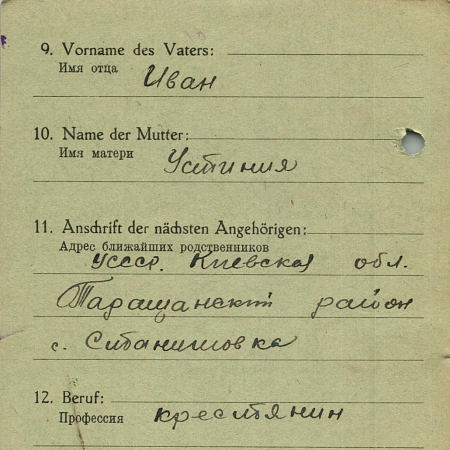 9. Vorname des Vaters:
Имя отца Иван
10. Name der Mutter:
Имя матери Устиния
11. Anschrift der nächsten Angehörigen:
Адрес ближайших родственников
УССР. Киевская обл.
Таращанский район
с.
12. Beruf:
Профессия крестянин